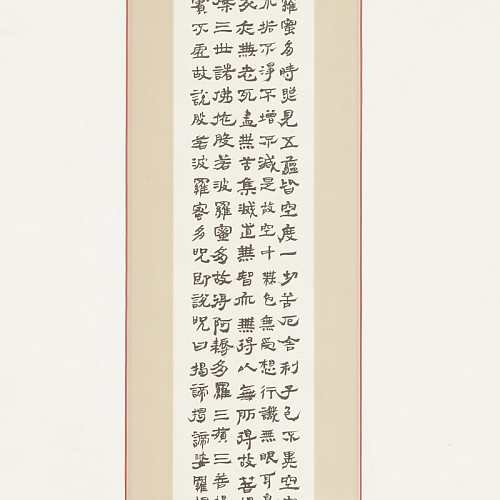 羅蜜多時照見五蘊皆空度一切苦厄舍利子色不異空
不垢不淨不增不減是故空中無色無受想行識無眼耳
死亦無老死盡無苦集滅道無智亦無得以無所得故菩
槃三世諸佛依般若波羅蜜多故得阿耨多羅三藐三菩
實不虛故說般若波羅蜜多咒即說咒曰揭諦揭諦婆羅